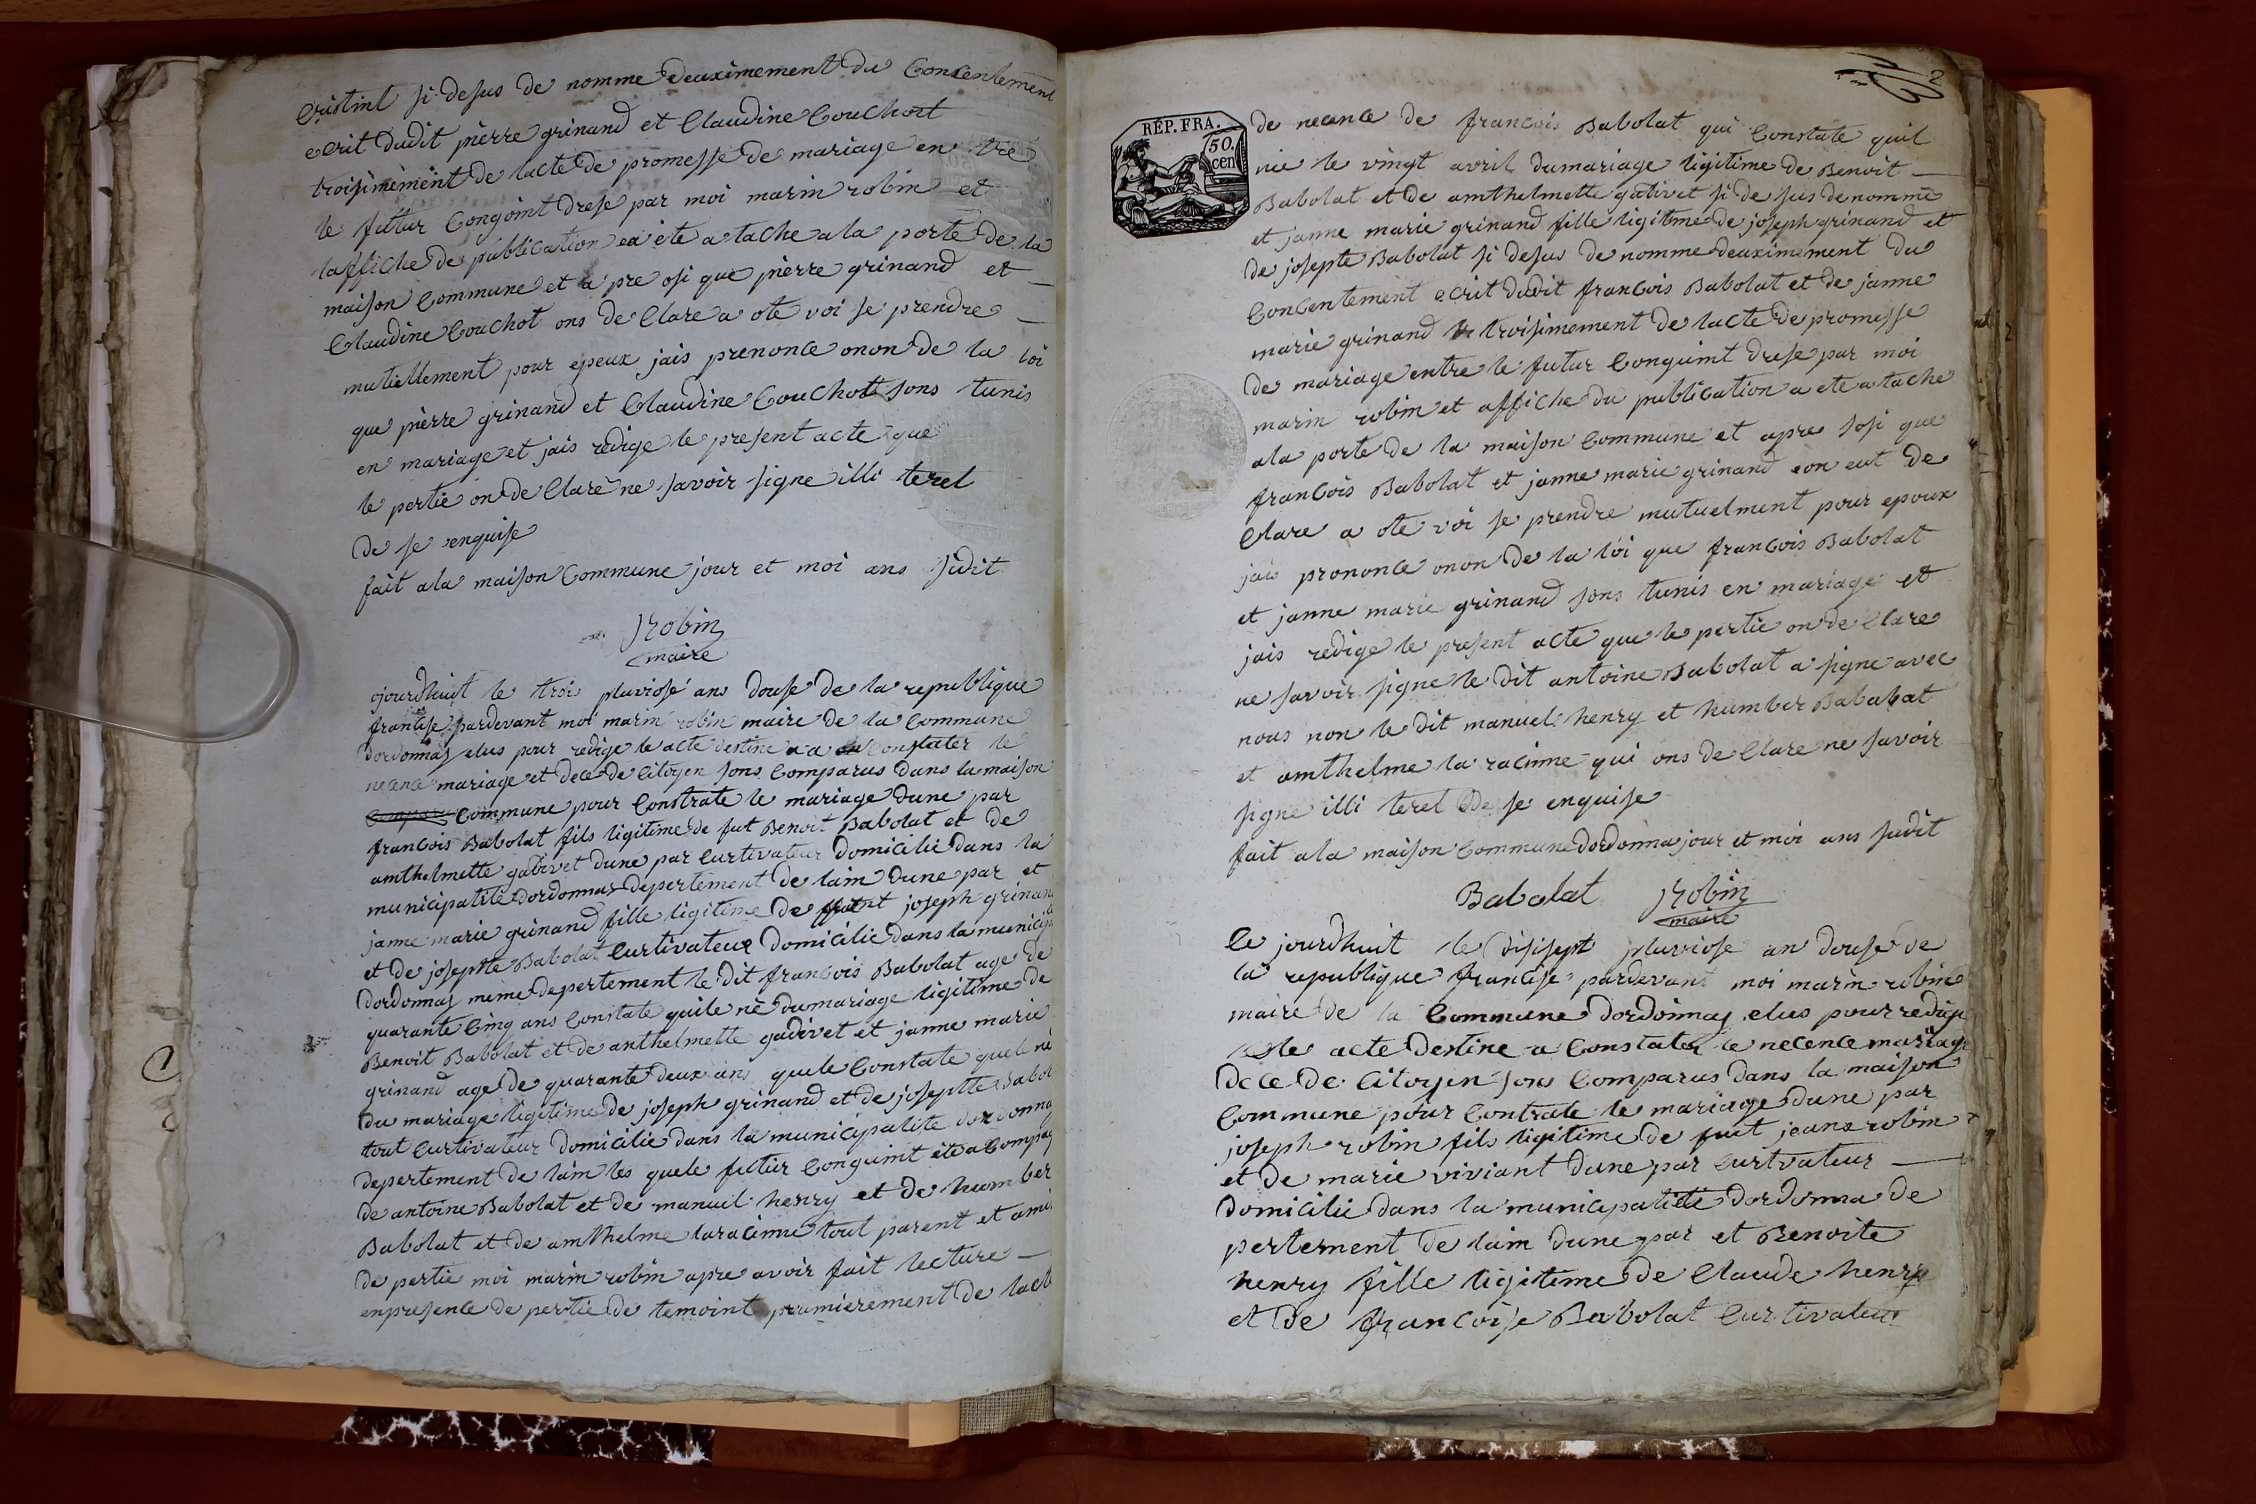 Cristint si desus de nomme deuximement du Consentement
ecrit dudit pierre grinand et Claudine Couchot
troisimement de lacte de promesse de mariage en tre
le futur Congoint drese par moi marin robin et
laffiche de publication ea ete a tache a la porte de la
maison Commune et a pre osi que pierre grinand et
Claudine Couchot ons de Clare a ote voi se prendre
mutiellement pour epeux jais prenonce onon de la loi
que pierre grinand et Claudine Couchot sons tunis
en mariage et jais redige le present acte que
le pertie on de Clare ne savoir signe illi terel
de se enquise
fait a la maison Commune jour et moi ans sidit
robin
maire
ojourdhuit le troi pluviose ans douse de la republique
francise pardevant moi marin robin maire de la Commune
dordonnas elus pour redige le acte destine a a Constater le
necence mariage et dece de Citoyen sons Comparus dans la maison
Commune pour Constrate le mariage dune par
francois Babolat fils ligitime de fut Benoit Babolat et de
amthelmette gativet dune par Curtivateur domicilie dans la
municipalite dordonnas depertement de lain dune par et
janne marie grinand fille ligitime de joseph grinand
et de josephte Babolat Curtivateur domicilie dans la municip
dordonnas meme depertement le dit francois Babolat age de
quarante Cinq ans Constate quile ne du mariage ligitime de
Benoit Babolat et de anthelmette gadivet et janne marie
grinand age de quarante deux ans quele Constate quel ne
du mariage ligitime de joseph grinand et de josephte Babol
tout Curtivateur domicilie dans la municipalite dordonna
depertement de lain les quele futur Conguint ete a Compag
de antoine Babolat et de manuel henry et de humber
Babolat et de amthelme laracinne tout parent et ami
de pertie moi marin robin apre avoir fait lecture
enpresence de pertie de temoint prumierement de lact
2
RÉP. FRA.
50.
cen
de necence de francois Babolat qui Constate quil
nie le vingt avril dumariage ligitime de Benoit
Babolat et de amthelmette gativet si de sus de nomme
et janne marie grinand fille ligitime de joseph grinand et
de josepte Babolat si desus de nomme deuximement du
Concentement ecrit dudit francois Babolat et de janne
marie grinand troisimement de lacte de promesse
de mariage entre le futur Conguint drese par moi
marin robin et affiche du publication a ete a tache
a la porte de la maison Commune et apre sosi que
francois Babolat et janne marie grinand eon eut de
Clare a ote voi se prendre mutuelment pour epoux
jais prononce onon de la loi que francois Babolat
et janne marie grinand sons tunis en mariage et
jais redige le present acte que le pertie on de Clare
ne savoir signe le dit antoine Babolat a signe avec
nous non le dit manuel henry et humber Babalat
et amthelme la racinne qui ons de Clare ne savoir
signe illi terel de se enquise
fait a la maison Commune dordonna jour et moi ans sudit
Babalat robin
maire
Ce jourdhuit le disisept pluviose an douse de
la republique francise pardevant moi marin robin
maire de la Commune dordonnas elus pour redige
le acte destine a Constater le necence mariage
dece de Citoyen sons Comparus dans la maison
Commune pour Contrate le mariage dune par
joseph robin fils ligitime de fuit jean robin
et de marie viviant dune par Curtvateur
domicilie dans la municipalité dordonna de
pertement de lain dune par et Benoite
henry fille ligitime de Claude henry
et de francoise Babolat Curtivateur